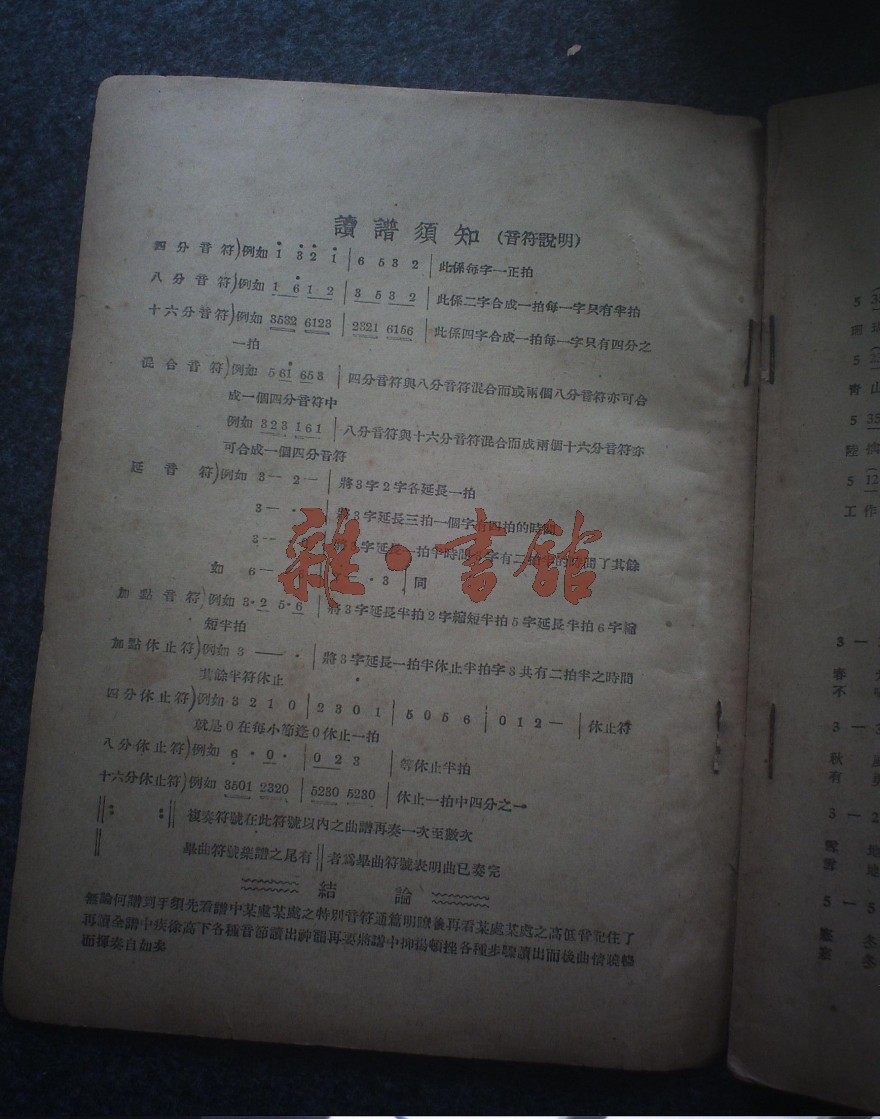 讀譜須知(音符說明)
四分音符)例如 1 3 2 1 | 6 5 3 2 | 此係每字一正拍
八分音符)例如 1 6 1 2 | 3 5 3 2 | 此係二字合成一拍每一字只有半拍
十六分音符)例如 3532 6123 | 2321 6156 | 此係四字合成一拍每一字只有四分之
一拍
混合音符)例如 5 61 65 3 | 四分音符與八分音符混合而或兩個八分音符亦可合
成一個四分音符中
例如 323 161 | 八分音符與十六分音符混合而成兩個十六分音符亦
可合成一個四分音符
延音符)例如 3 — 2 — | 將3字2字各延長一拍
3 — · | 將3字延長三拍一個字有四拍的時間
3 — 將3字延長一拍半時間3字有二拍半的時間了其餘
如 6 — · 3 | 同
加點音符)例如 3·2 5·6 | 將3字延長半拍2字縮短半拍5字延長半拍6字縮
短半拍
加點休止符)例如 3 — · | 將3字延長一拍半休止半拍字3共有二拍半之時間
其餘半符休止
四分休止符)例如 3 2 1 0 | 2 3 0 1 | 5 0 5 6 | 0 1 2 — | 休止符
就是0在每小節逢0休止一拍
八分休止符)例如 6 · 0 · | 0 2 3 | 等休止半拍
十六分休止符)例如 3501 2320 | 5230 5230 | 休止一拍中四分之一
‖: :‖ 複奏符號在此符號以內之曲譜再奏一次至數次
‖ 畢曲符號樂譜之尾有‖者爲畢曲符號表明曲已奏完
結論
無論何譜到手須先看譜中某處某處之特別音符通篇明瞭後再看某處某處之高低音記住了
再讀全譜中疾徐高下各種音節讀出神韻再要將譜中抑揚頓挫各種步驟讀出而後曲情
而揮奏自如矣
雜·書館
5 3
5 2
青山
5 35
陸
5 12
工作
3 —
春
不
3 — 3
秋
有
3 — 2
雪 地
雪 地
5 — 5
冬
冬